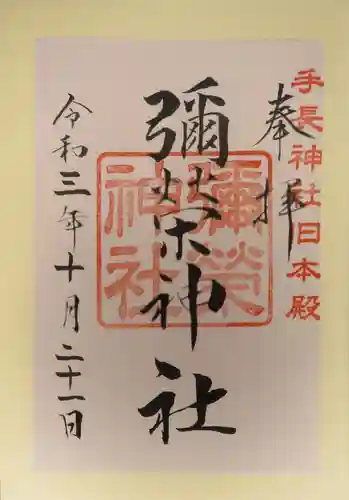 手長神社日本殿
奉拝
彌榮神社
彌榮
神社
令和三年十月二十一日